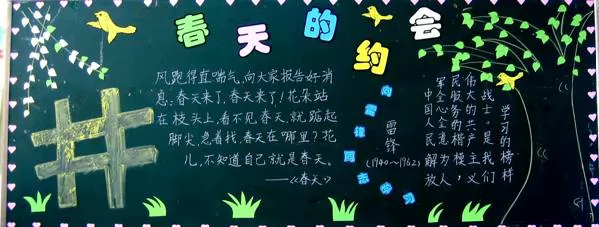 春天的约会
风跑得直喘气,向大家报告好消
息:春天来了,春天来了!花朵站
在枝头上,看不见春天,就踮起
脚尖,急着找,春天在哪里?花
儿,不知道自己就是春天。
——《春天》
向雷锋同志学习
雷锋
(1940~1962)
中国人民解放
军全心全意为人
民服务的楷模,
伟大的共产主义
战士,是我们
学习的榜样